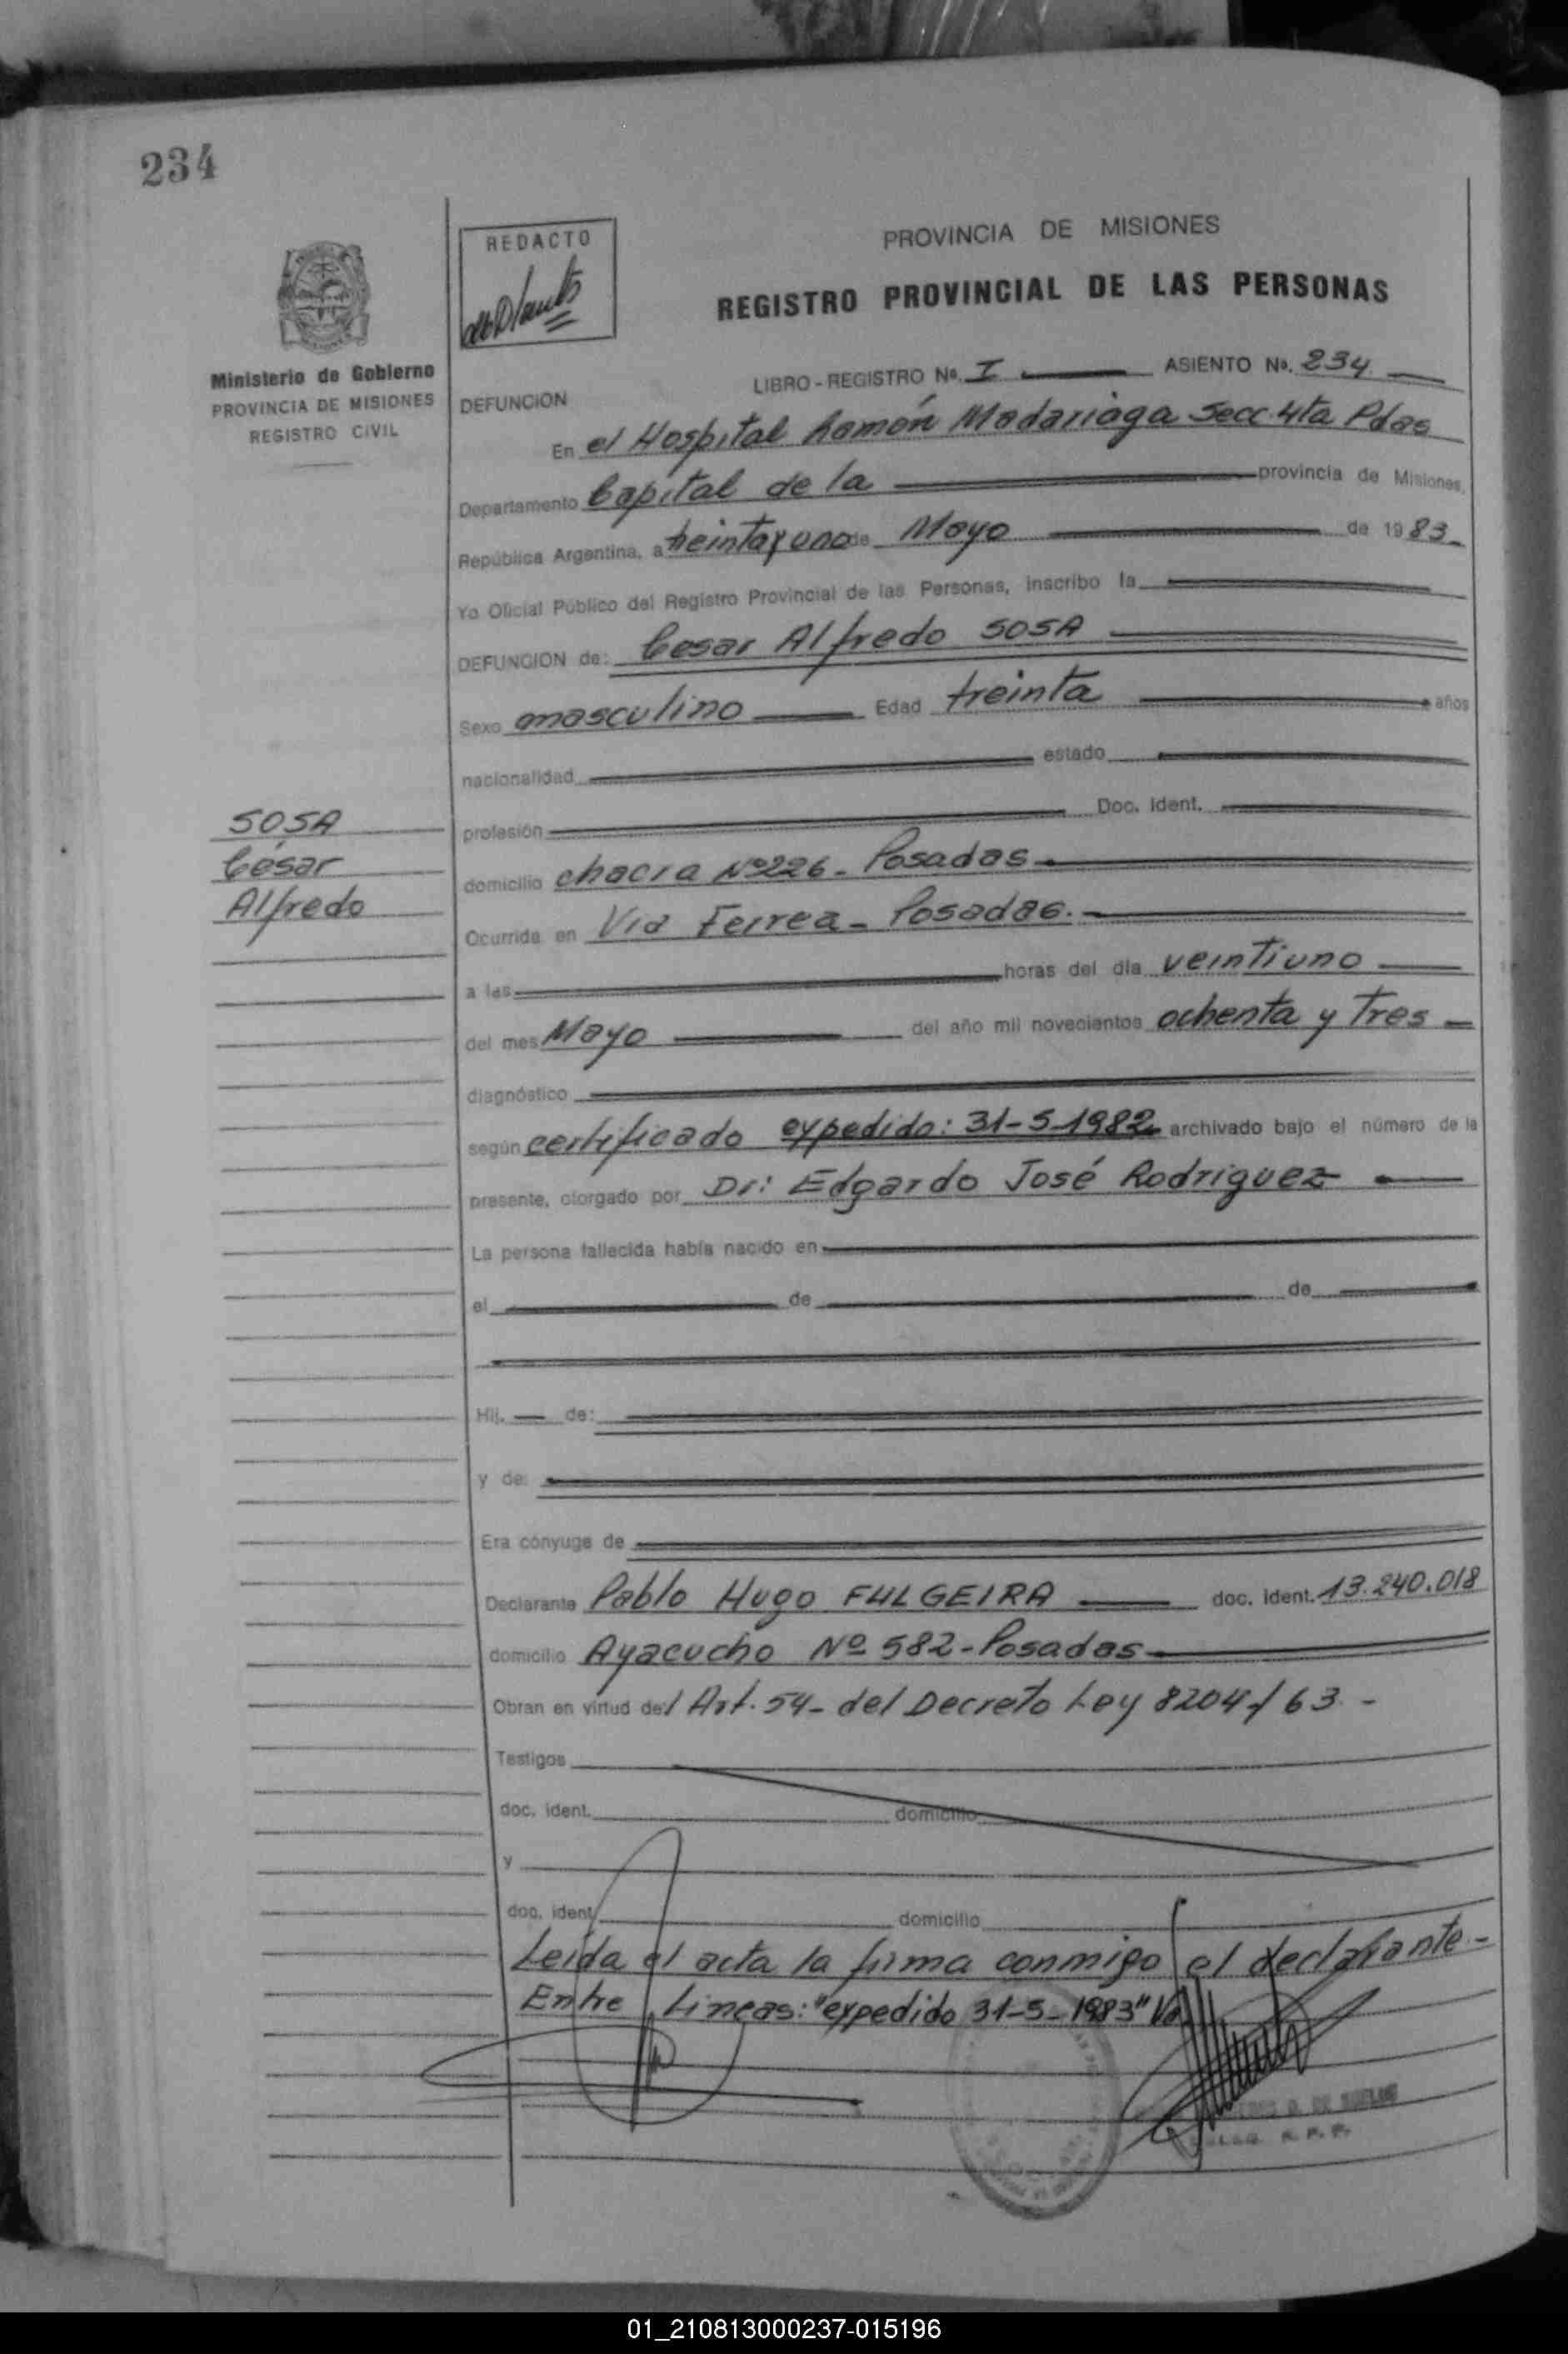 234
REDACTO
PROVINCIA DE MISIONES
REGISTRO PROVINCIAL DE LAS PERSONAS
Ministerio de Gobierno
PROVINCIA DE MISIONES
REGISTRO CIVIL
LIBRO - REGISTRO Nº. I ASIENTO Nº. 234
DEFUNCION
En el Hospital Ramón Madariaga Secc. 4ta Pdas
Departamento Capital de la provincia de Misiones,
República Argentina, a treinta y uno de Mayo de 1983.
Yo Oficial Público del Registro Provincial de las Personas, inscribo la
DEFUNCION de: Cesar Alfredo SOSA
Sexo masculino Edad treinta años
nacionalidad estado
profesión Doc. Ident.
SOSA
César
Alfredo
domicilio chacra Nº 226 - Posadas
Ocurrida en Via Ferrea - Posadas.
a las horas del día veintiuno
del mes Mayo del año mil novecientos ochenta y Tres
diagnóstico
según certificado expedido: 31-5-1982 archivado bajo el número de la
presente, otorgado por Dr: Edgardo José Rodriguez
La persona fallecida había nacido en
el de de
Hij. de:
y de:
Era cónyuge de
Declarante Pablo Hugo FULGEIRA doc. ident. 13.240.018
domicilio Ayacucho Nº 582 - Posadas
Obran en virtud del Art. 54 - del Decreto Ley 8204/63 -
Testigos
doc. ident. domicilio
y
doc. ident. domicilio
Leída el acta la firma conmigo el declarante -
Entre Lineas: "expedido 31-5-1983"
01_210813000237-015196